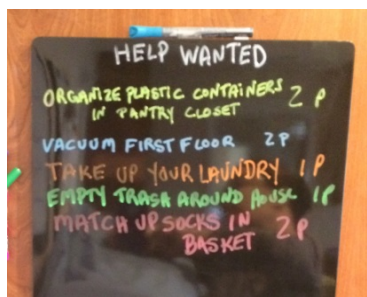 HELP WANTED
ORGANIZE PLASTIC CONTAINERS 2 P
IN PANTRY CLOSET
VACUUM FIRST FLOOR 2P
TAKE UP YOUR LAUNDRY 1P
EMPTY TRASH AROUND HOUSE 1P
MATCH UP SOCKS IN 2P
BASKET